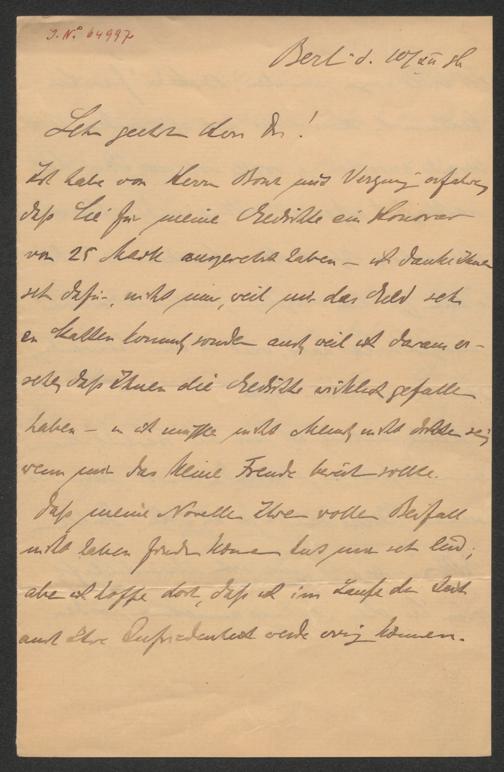 J. N.º 64997
Berlin d. 10/XII 86
Sehr geehrter Herr Dr.!
Ich habe von Herrn und Vergnügen erfahren,
daß Sie für meine Gedichte ein Honorar
von 25 Mark ausgesetzt haben – ich danke Ihnen
sehr dafür, nicht nur, weil mir das Geld sehr
zu Statten kommt, sondern auch weil ich daraus er-
sehe, daß Ihnen die Gedichte wirklich gefallen
haben – u ich müßte nicht Mensch, nicht Dichter sein,
wenn mir das keine Freude bereiten sollte.
Daß meine Novelle Ihren vollen Beifall
nicht haben finden können thut mir sehr leid;
aber ich hoffe doch, daß ich im Laufe der Zeit
auch Ihre Zufriedenheit werde erringen können.